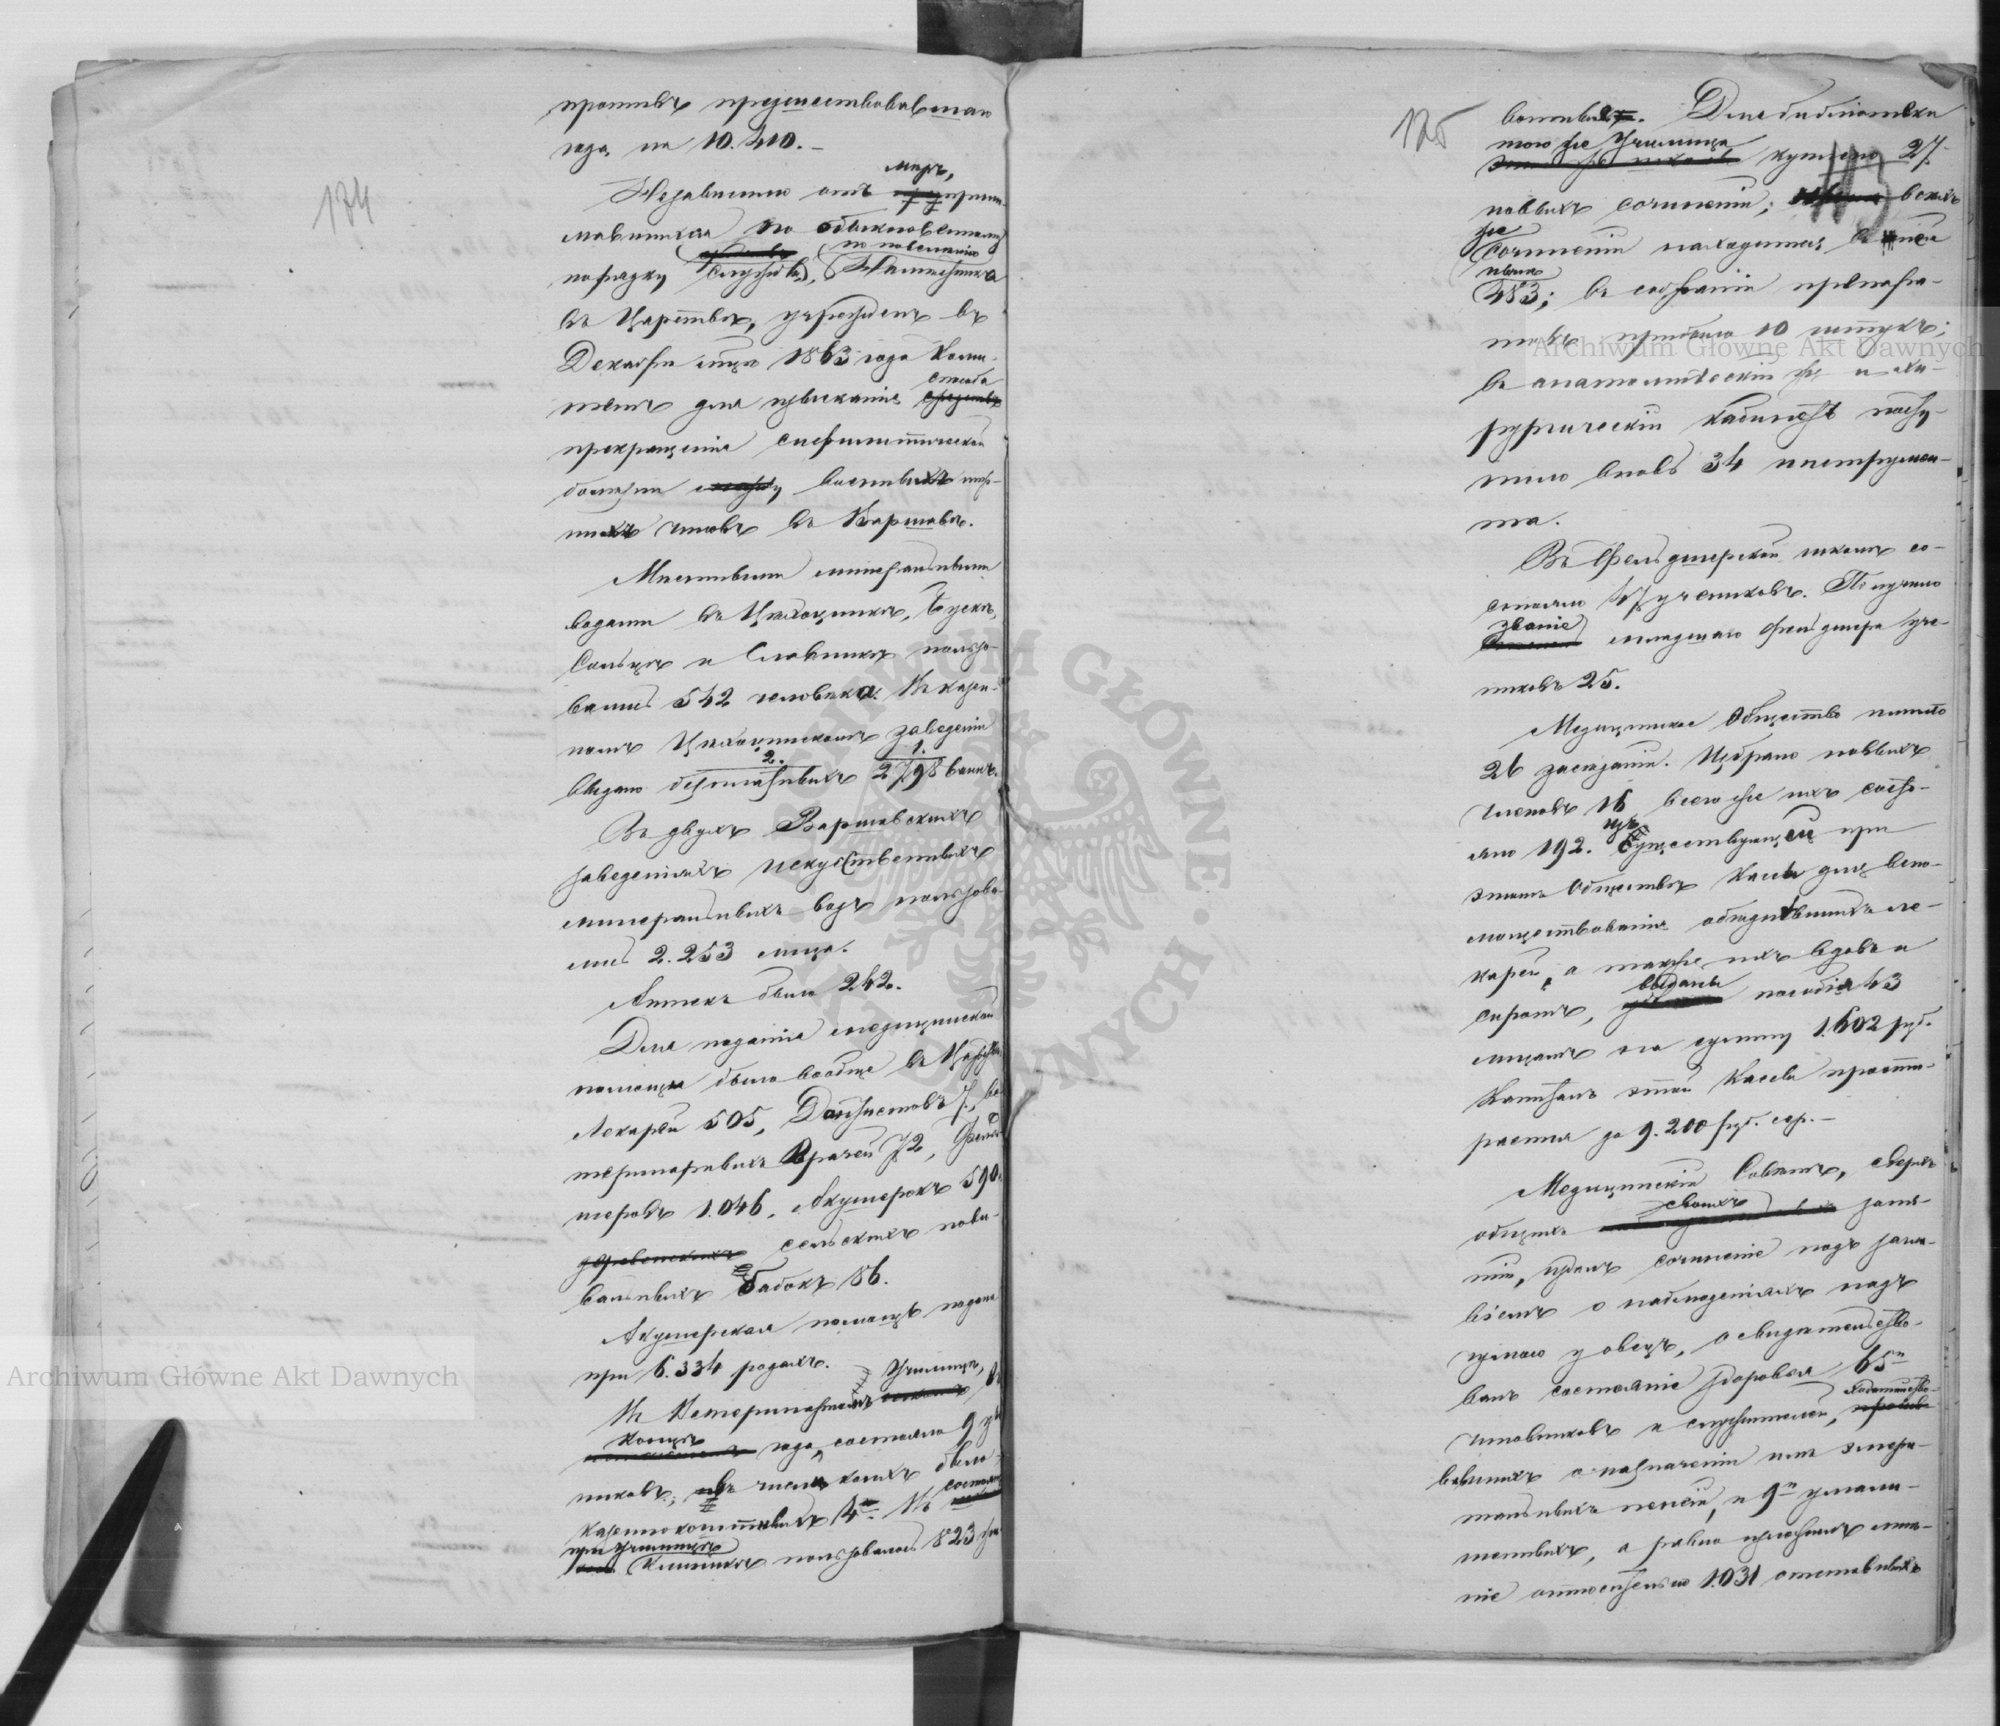 174
противъ предшествовавшаго
года, на 10.410.–
Независимо отъ мѣръ, прини-
мавшихся по обыкновенному
порядку службы, по повелѣнію Намѣстника
въ Царствѣ, учрежденъ въ
Декабрѣ мѣсяцѣ 1863 года Коми-
тетъ для изысканія способа
прекращенія сифилитической
болѣзни между военныхъ ниж-
нихъ чиновъ въ Варшавѣ.
Мѣстными минеральными
водами въ Цѣхоцинкѣ, Буске,
Сольцѣ и Славинкѣ пользо-
вались 542 человѣка. Въ казен-
номъ Цѣхоцинскомъ заведеніи
выдано безплатныхъ 2798 ваннъ.
Въ двухъ Варшавскихъ
заведеніяхъ искуственныхъ
минеральныхъ водъ пользова-
лись 2.253 лица.
Аптекъ было 242.
Для поданія медицинской
помощи было вообще въ Царствѣ
Лекарей 505, Дантистовъ 7, ве-
теринарныхъ Врачей 72, Фельд-
шеровъ 1.046, Акушерокъ 590,
сельскихъ повив-
вальныхъ бабокъ 186.
Акушерская помощь подана
при 6.334 родахъ.
Въ Ветеринарномъ Училищѣ, въ
концѣ года, состояло 9 уче-
никовъ; въ числѣ коихъ было
казеннокоштныхъ 4. Въ состоящей
при училищѣ Клиникѣ пользовалось 823
125
113
вотныхъ. Для библіотеки
того же Училища куплено 27
новыхъ сочиненій; всѣхъ
же сочиненій находится въ ней
нынѣ 483; въ собраніи препара-
товъ прибыло 10 штукъ;
въ анатомическій же и хи-
рургическій кабинетъ посту-
пило вновь 34 инструмен-
та.
Въ Фельдшерской школѣ со-
стояло учениковъ. Получило
званіе младшаго фельдшера уче-
никовъ 25.
Медицинское Общество имѣло
26 засѣданій. Избрано новыхъ
членовъ 16 всего же ихъ состо-
яло 192. Изъ существующей при
этомъ Обществѣ Кассы для вспо-
моществованія обѣднѣвшимъ ле-
карей, а также ихъ вдовъ и
сиротъ, выданы пособія 43
лицамъ на сумму 1.602 руб.
Капиталъ этой Кассы прости-
рается до 9.200 руб. сер.–
Медицинскій Совѣтъ, сверхъ
общихъ своихъ заня-
тій, издалъ сочиненіе подъ загла-
віемъ о наблюденіяхъ надъ
у овецъ, освидѣтельство-
валъ состояніе здоровья 65
чиновниковъ и служителей, ходатайство-
вавшихъ о назначеніи имъ эмери-
тальныхъ пенсій, и 9
а равно изложилъ мнѣ-
ніе относительно 1.031 отставныхъ
Archiwum Główne Akt Dawnych
Archiwum Główne Akt Dawnych
ARCHIWUM GŁÓWNE AKT DAWNYCH